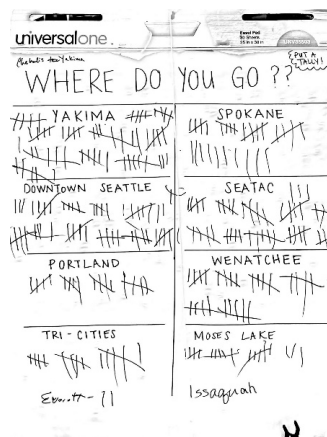 universal one
Easel Pad
50 Sheets
WHERE DO YOU GO ??
PUT A
TALLY!
YAKIMA
SPOKANE
DOWNTOWN SEATTLE
SEATAC
PORTLAND
WENATCHEE
TRI-CITIES
MOSES LAKE
Everett - 11
Issaquah